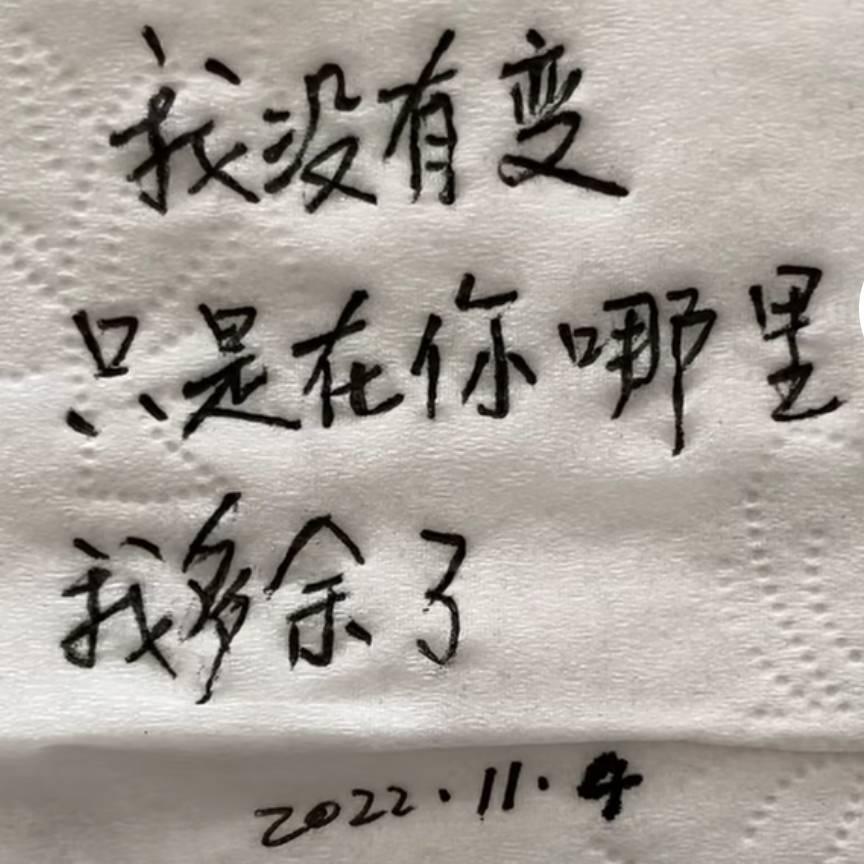 我没有变
只是在你哪里
我多余了
2022.11.4